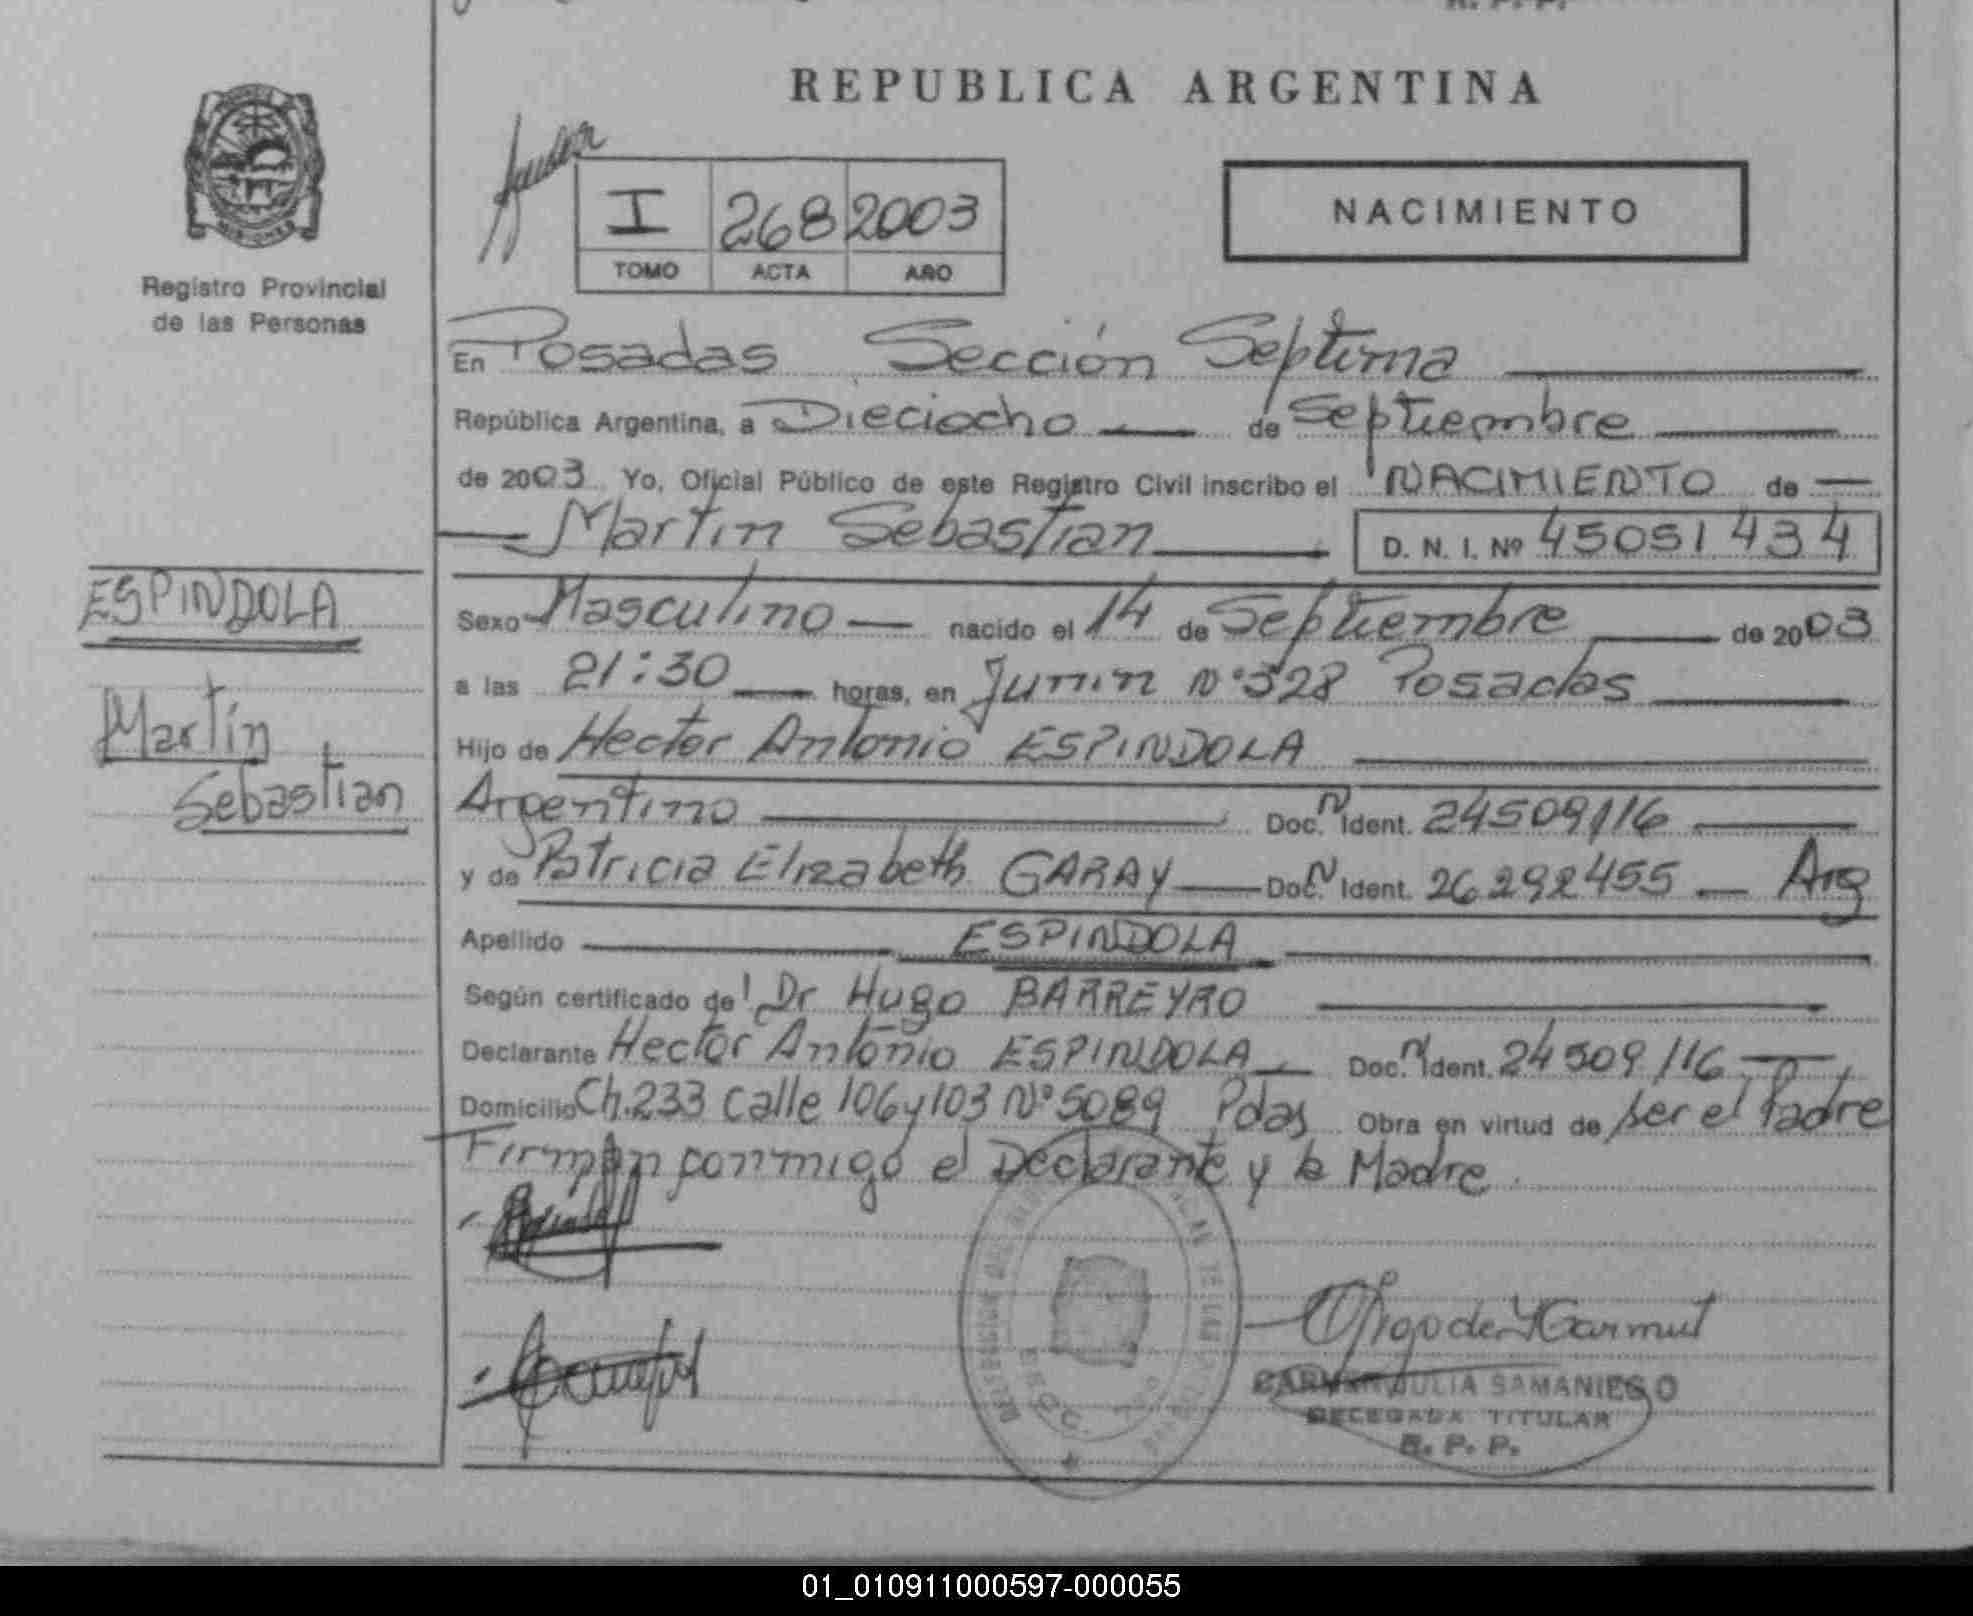 REPUBLICA ARGENTINA
I 268 2003
TOMO ACTA AÑO
NACIMIENTO
Registro Provincial
de las Personas
En Posadas Sección Septima
República Argentina, a Dieciocho de Septiembre
de 2003 Yo, Oficial Público de este Registro Civil inscribo el NACIMIENTO de
Martin Sebastian D. N. I. Nº 45051434
ESPINDOLA
Martín
Sebastian
Sexo Masculino nacido el 14 de Septiembre de 2003
a las 21:30 horas, en Junin Nº 328 Posadas
Hijo de Hector Antonio ESPINDOLA
Argentino Doc. N Ident. 24509116
y de Patricia Elizabeth GARAY Doc. N Ident. 26292455 Arg
Apellido ESPINDOLA
Según certificado de Dr Hugo BARREYRO
Declarante Hector Antonio ESPINDOLA Doc. N Ident. 24509116
Domicilio Ch.233 Calle 106 y 103 Nº 5089 Pdas Obra en virtud de ser el Padre
Firman conmigo el Declarante y la Madre.
CARMEN JULIA SAMANIEGO
DELEGADA TITULAR
R. P. P.
01_010911000597-000055